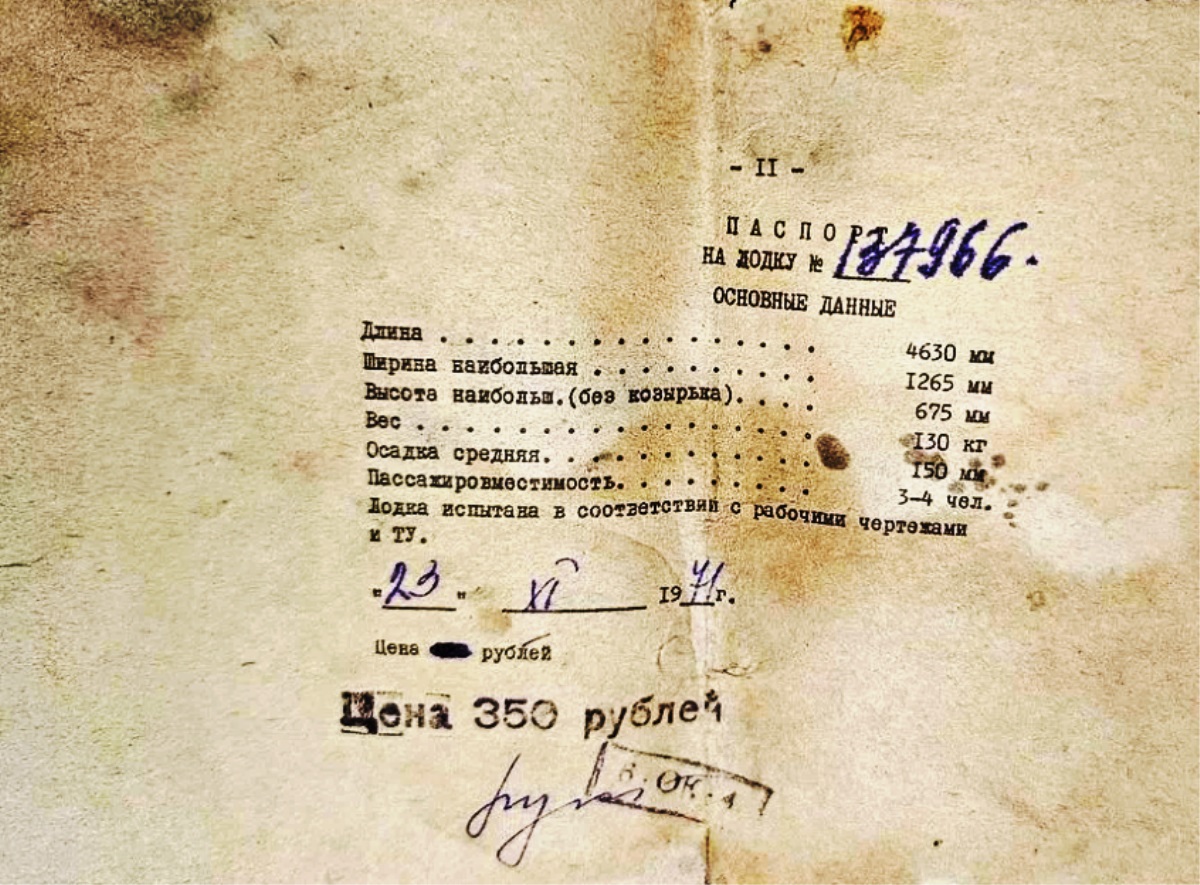 - II -
ПАСПОРТ
НА ЛОДКУ № 137966.
ОСНОВНЫЕ ДАННЫЕ
Длина . . . . . . . . . . . . . . . . . 4630 мм
Ширина наибольшая . . . . . . . . . . I265 мм
Высота наибольш.(без козырька). . . . 675 мм
Вес . . . . . . . . . . . . . . . . . . I30 кг
Осадка средняя. . . . . . . . . . . . I50 мм
Пассажировместимость. . . . . . . . . 3-4 чел.
Лодка испытана в соответствии с рабочими чертежами
и ТУ.
"23" XI 1971г.
Цена рублей
Цена 350 рублей